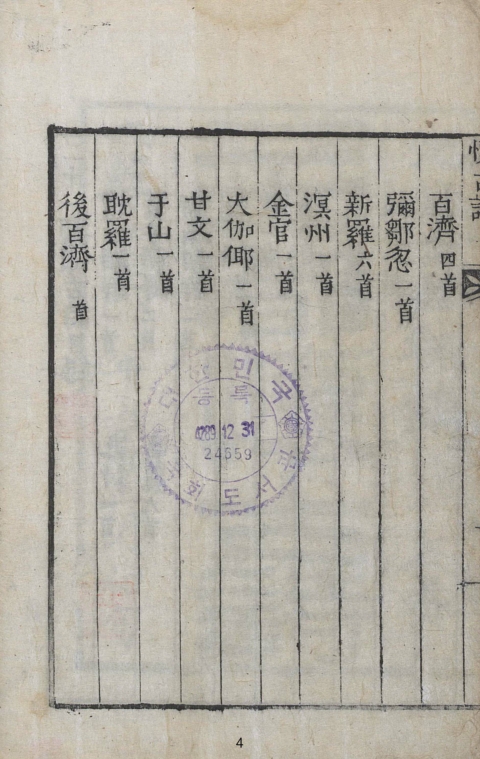 百濟四首
彌鄒忽一首
新羅六首
溟州一首
金官一首
大伽倻一首
甘文一首
于山一首
耽羅一首
後百濟一首
대한민국
등록
4289 12 31
24559
국회도서관
4